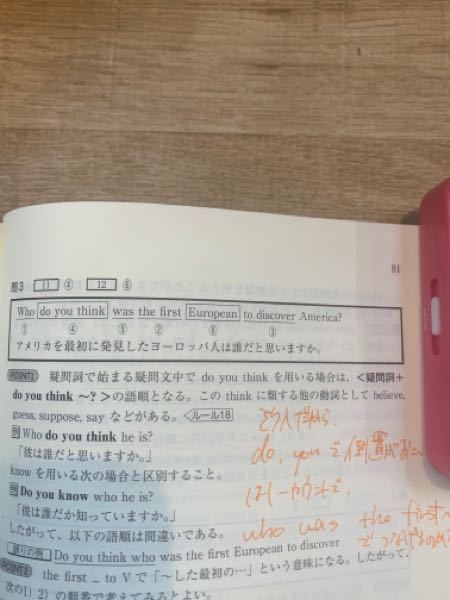 81
問3 11 ④ 12 ⑥
Who do you think was the first European to discover America?
① ④ ⑤ ② ⑥ ③
アメリカを最初に発見したヨーロッパ人は誰だと思いますか。
POINT1 疑問詞で始まる疑問文中で do you think を用いる場合は、<疑問詞+
do you think ~?>の語順となる。この think に類する他の動詞として believe,
guess, suppose, say などがある。<ルール18
例 Who do you think he is?
「彼は誰だと思いますか。」
know を用いる次の場合と区別すること。
例 Do you know who he is?
「彼は誰だか知っていますか。」
したがって、以下の語順は間違いである。
誤りの例 Do you think who was the first European to discover
POINT2 the first _ to V で「~した最初の…」という意味になる。したがって、
次の1) 2) の順番で考えてみるとよい。
do, you で倒置が
who was the first~